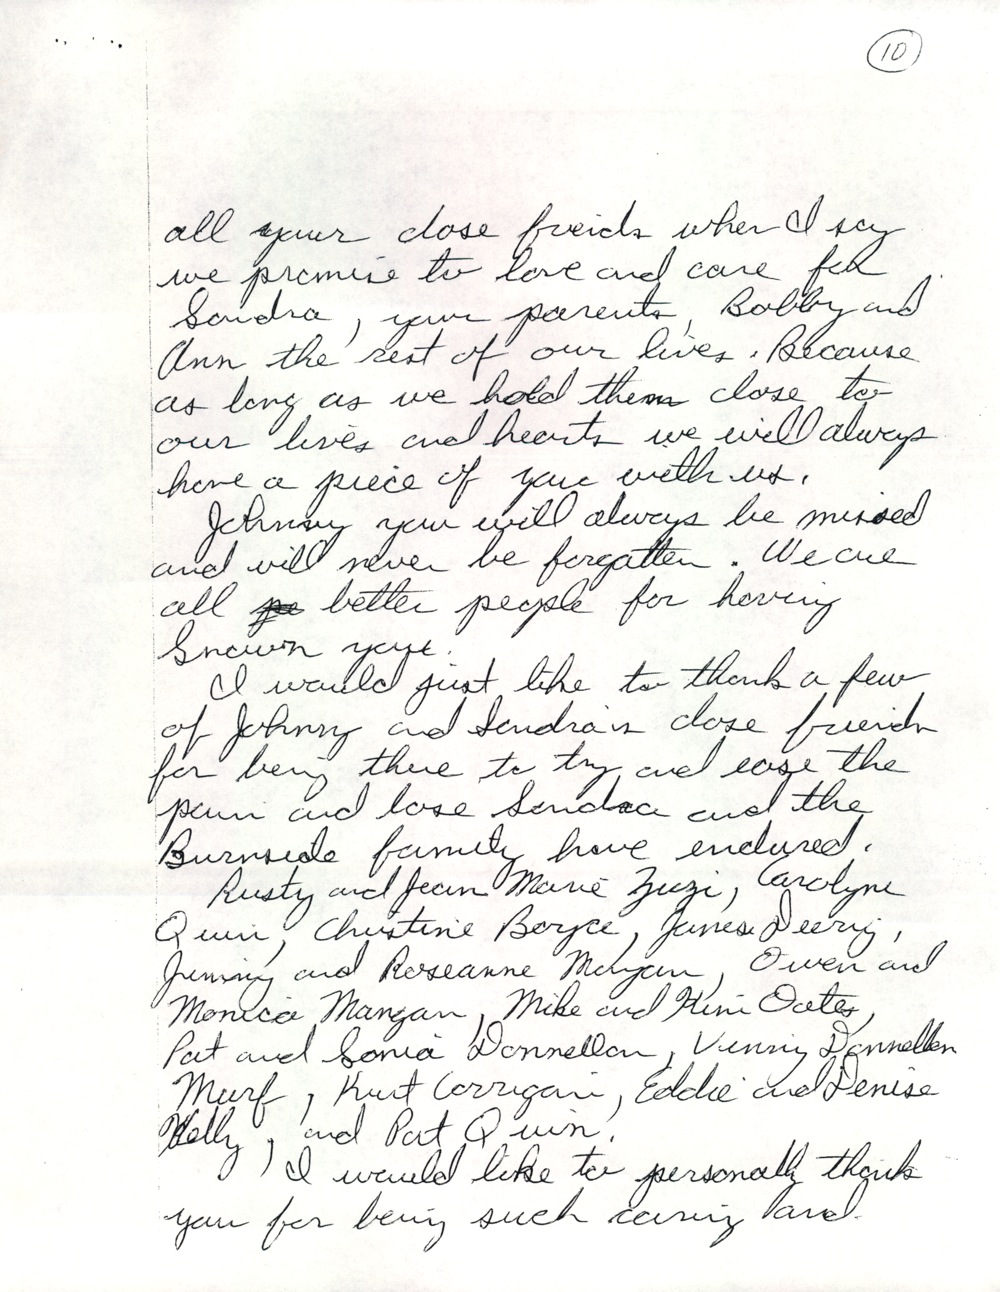 10
all your close freids when I say
we promise to love and care for
Sandra, your parents, Bobby and
Ann the rest of our lives. Because
as long as we hold them close to
our lives and hearts we will always
have a piece of you with us.
Johnny you will always be missed
and will never be forgotten. We are
all better people for having
known you.
I would just like to thank a few
of Johnny and Sandra's close friends
for being there to try and ease the
pain and lose Sandra and the
Burnside family have endured.
Rusty and Jean Marie Zuzi, Carolyne
Quin, Christine Boyce, James Deery,
Jimmy and Roseanne Mangan, Owen and
Monica Mangan, Mike and Kim Oates,
Pat and Sonia Donnellan, Vinny Donnellan
Murf, Kurt Corrigan, Eddie and Denise
Kelly, and Pat Quin.
I would like to personally thank
you for being such caring and